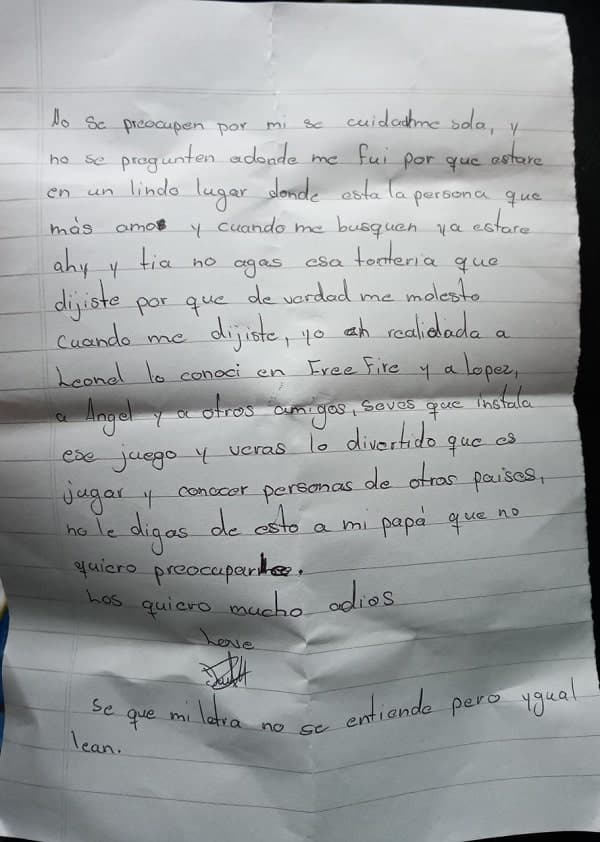 No se preocupen por mi se cuidadme sola, y
no se pregunten adonde me fui por que estare
en un lindo lugar donde esta la persona que
más amo y cuando me busquen ya estare
ahy y tia no agas esa tonteria que
dijiste por que de verdad me molesto
cuando me dijiste, yo eh realidada a
Leonel lo conoci en Free Fire y a Lopez,
a Angel y a otros amigos, seves que instala
ese juego y veras lo divertido que es
jugar y conocer personas de otros paises,
no le digas de esto a mi papá que no
quiero preocuparle.
Los quiero mucho adios
Se que mi letra no se entiende pero ygual
lean.